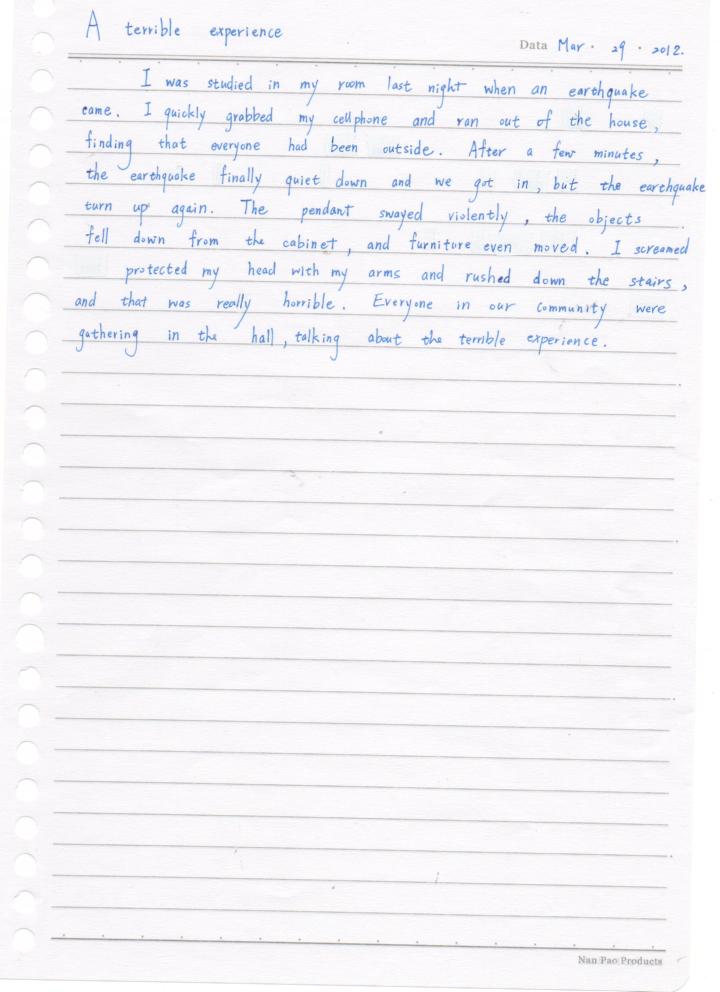 A terrible experience
Data Mar. 29. 2012.
I was studied in my room last night when an earthquake
came. I quickly grabbed my cellphone and ran out of the house,
finding that everyone had been outside. After a few minutes,
the earthquake finally quiet down and we got in, but the earthquake
turn up again. The pendant swayed violently, the objects
fell down from the cabinet, and furniture even moved. I screamed
protected my head with my arms and rushed down the stairs,
and that was really horrible. Everyone in our community were
gathering in the hall, talking about the terrible experience.
Nan Pao Products